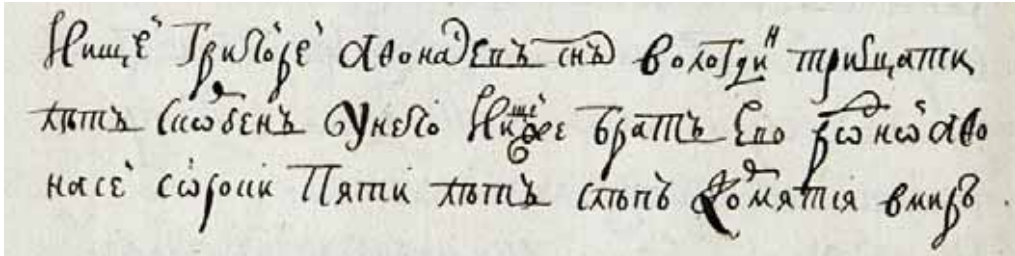 Нищей Григорей Афонасевъ снъ вологдин тритцати
лѣтъ способенъ У него Нищей же братъ Его родной Афо
насей сорок Пяти лѣтъ слѣпъ Кормятца вмиръ